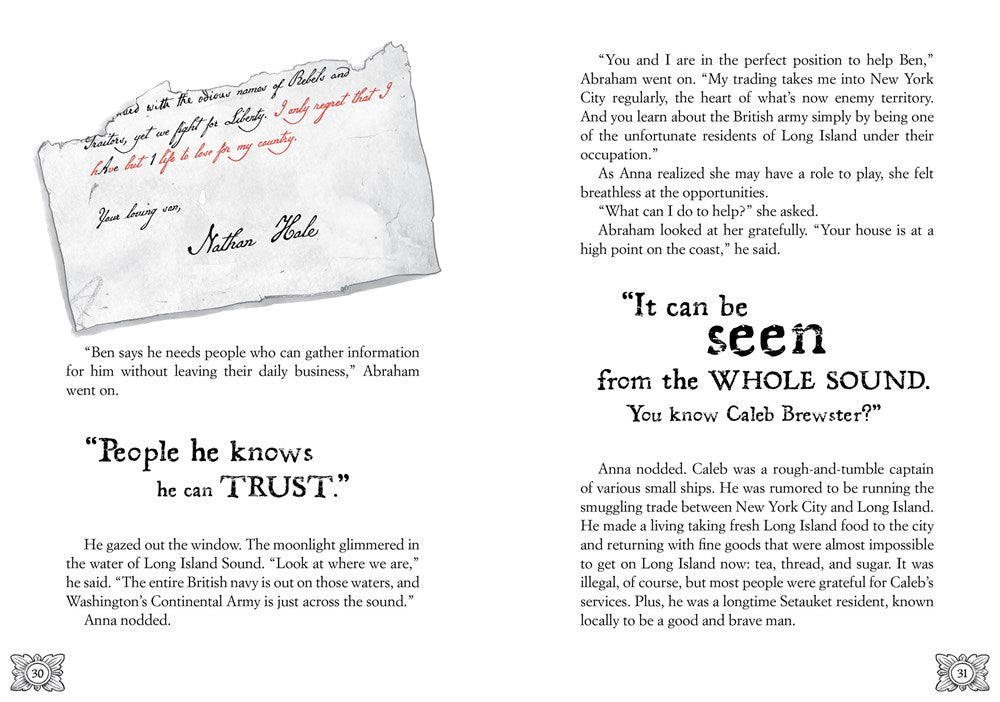 with the odious names of Rebels and
Traitors, yet we fight for Liberty. I only regret that I
hAve but 1 life to lose for my country.
Your loving son,
Nathan Hale
“Ben says he needs people who can gather information
for him without leaving their daily business,” Abraham
went on.
“People he knows
he can TRUST.”
He gazed out the window. The moonlight glimmered in
the water of Long Island Sound. “Look at where we are,”
he said. “The entire British navy is out on those waters, and
Washington’s Continental Army is just across the sound.”
Anna nodded.
30
“You and I are in the perfect position to help Ben,”
Abraham went on. “My trading takes me into New York
City regularly, the heart of what’s now enemy territory.
And you learn about the British army simply by being one
of the unfortunate residents of Long Island under their
occupation.”
As Anna realized she may have a role to play, she felt
breathless at the opportunities.
“What can I do to help?” she asked.
Abraham looked at her gratefully. “Your house is at a
high point on the coast,” he said.
“It can be
seen
from the WHOLE SOUND.
You know Caleb Brewster?”
Anna nodded. Caleb was a rough-and-tumble captain
of various small ships. He was rumored to be running the
smuggling trade between New York City and Long Island.
He made a living taking fresh Long Island food to the city
and returning with fine goods that were almost impossible
to get on Long Island now: tea, thread, and sugar. It was
illegal, of course, but most people were grateful for Caleb’s
services. Plus, he was a longtime Setauket resident, known
locally to be a good and brave man.
31